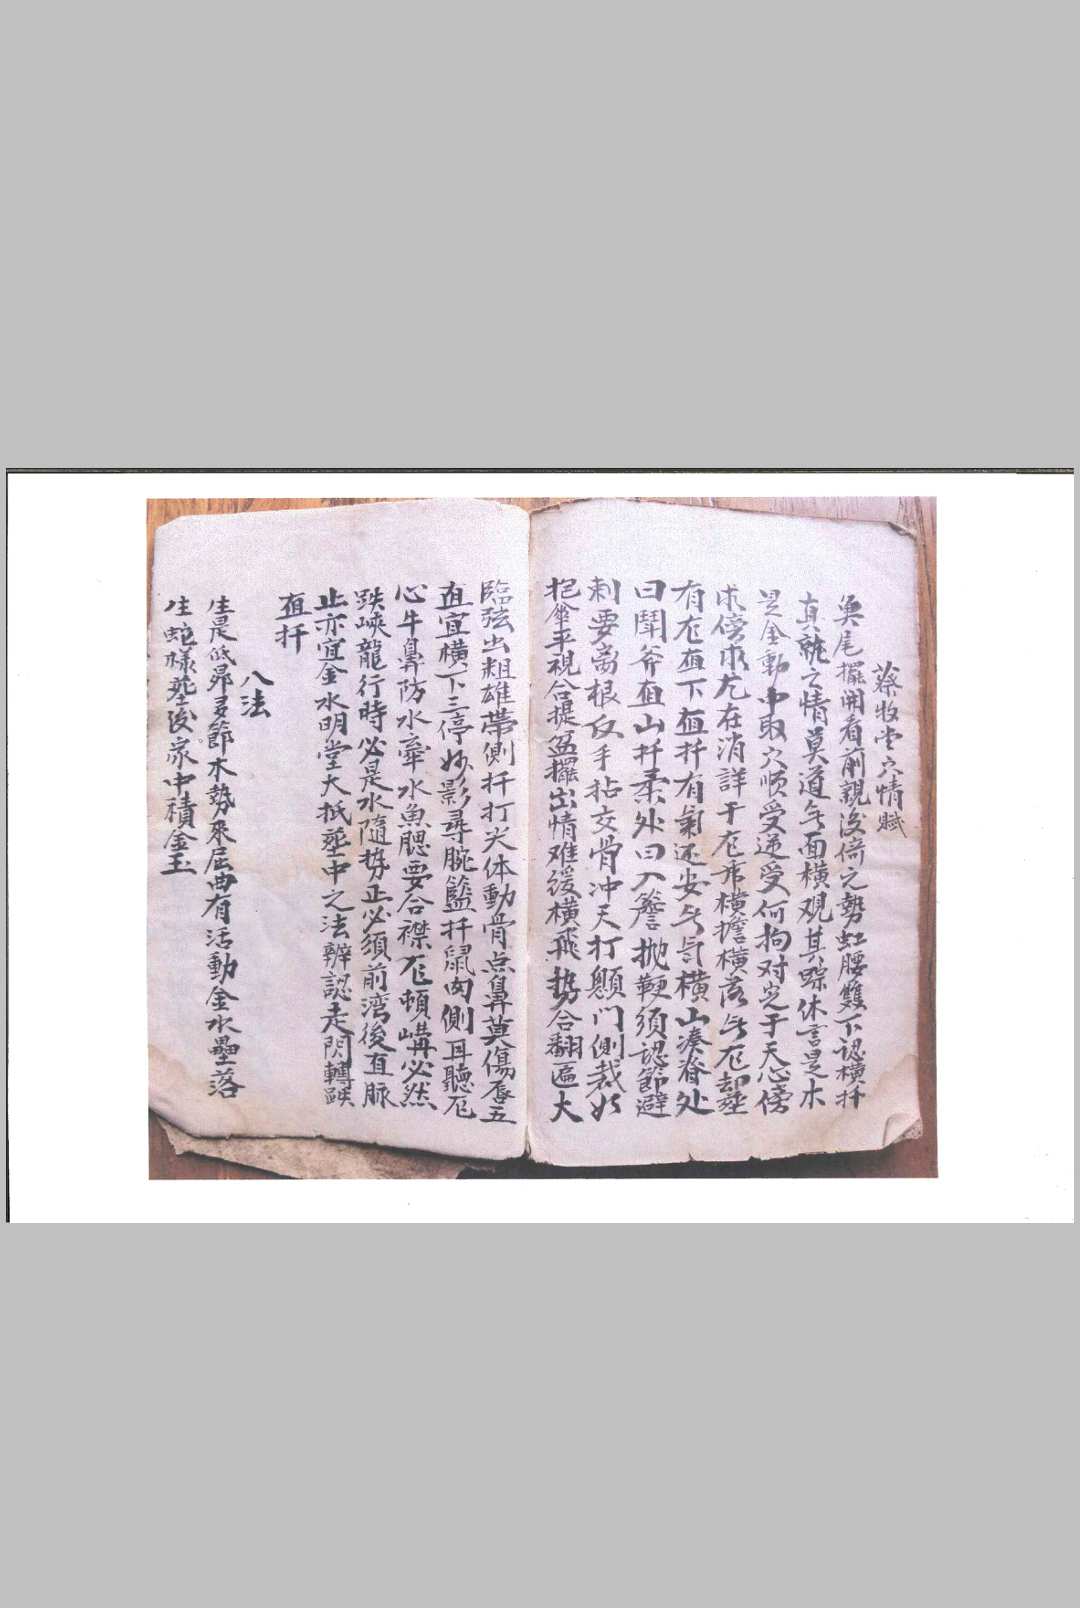 蔡牧堂穴情賦
魚尾擺開看前親後倚之勢虹腰雙下認橫扦
真龍之情莫道无面橫观其踪休言是木
是金動中取穴顺受逆受何拘对定于天心傍
求傍求尤在消詳于后帝橫担橫落无后却葬
有后直下直扦有氣还安无气橫山湊脊处
曰鬪斧直山扦柔处曰入簷抛鞭须認節避
剌要离根仅手拈交骨冲天打顖门側裁如
把傘平視合提盆擺出情难缓橫飛势合翻逼大
臨弦出粗雄帶側扦打尖体動骨点鼻莫傷唇五
直宜橫下三停妙影尋腕籃扦鼠肉側耳聽后
心牛鼻防水牽水魚腮要合襟后頓嶙必然
跌峽龍行時必是水隨势止必须前湾後直脉
止亦宜金水明堂大抵葬中之法辨認走閃轉跌
直扦
八法
生是低昂多節木勢來屈曲有活動金水壘落
生蛇樣葬後家中積金玉